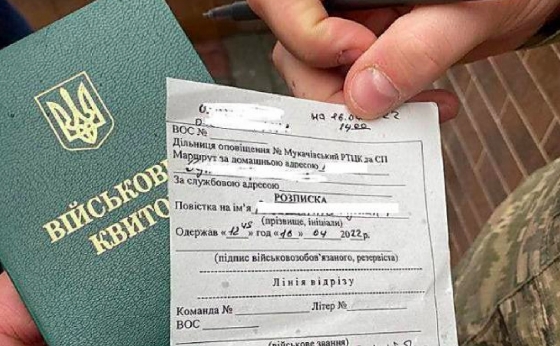 ВІЙСЬКОВ
КВИТО
на 16.04
14.00
ВОС №
Дільниця оповіщення № Мукачівський РТЦК за СП
Маршрут за домашньою адресою
За службовою адресою
РОЗПИСКА
Повістка на ім'я
(прізвище, ініціали)
Одержав « 12 45 » год « 16 » 04 2022р.
(підпис військовозобов'язаного, резервіста)
Лінія відрізу
Команда № Літер №
ВОС
(військове звання)